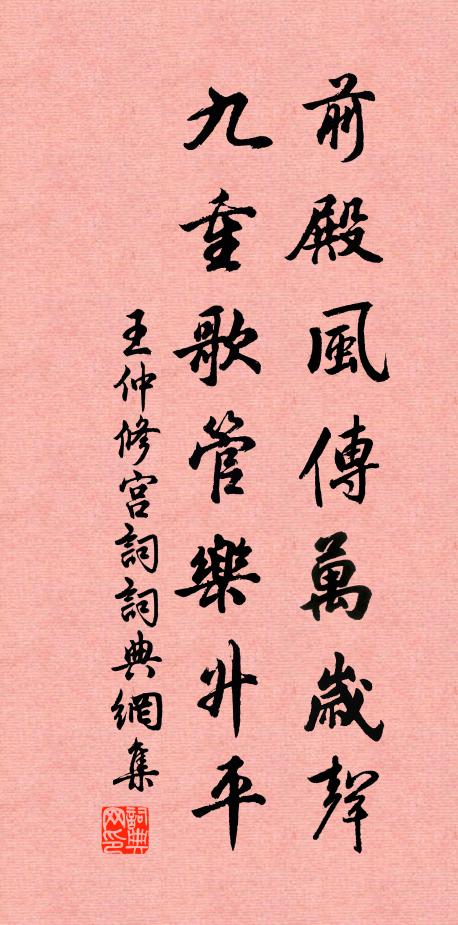 前殿風傳萬歲聲
九重歌管樂升平
王仲修宮詞詞典網集
詞典网印